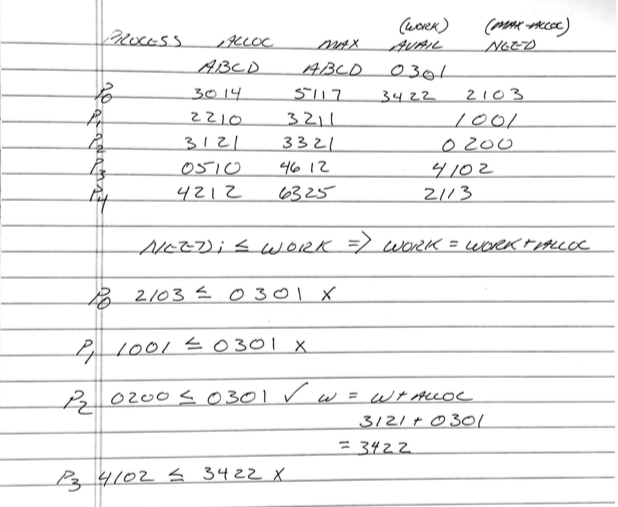 (WORK) (MAX-ALLOC)
PROCESS ALLOC MAX AVAIL NEED
ABCD ABCD 0301
P0 3014 5117 3422 2103
P1 2210 3211 1001
P2 3121 3321 0200
P3 0510 4612 4102
P4 4212 6325 2113
NEEDi ≤ WORK => WORK = WORK + ALLOC
P0 2103 ≤ 0301 X
P1 1001 ≤ 0301 X
P2 0200 ≤ 0301 ✓ W = W + ALLOC
3121 + 0301
= 3422
P3 4102 ≤ 3422 X